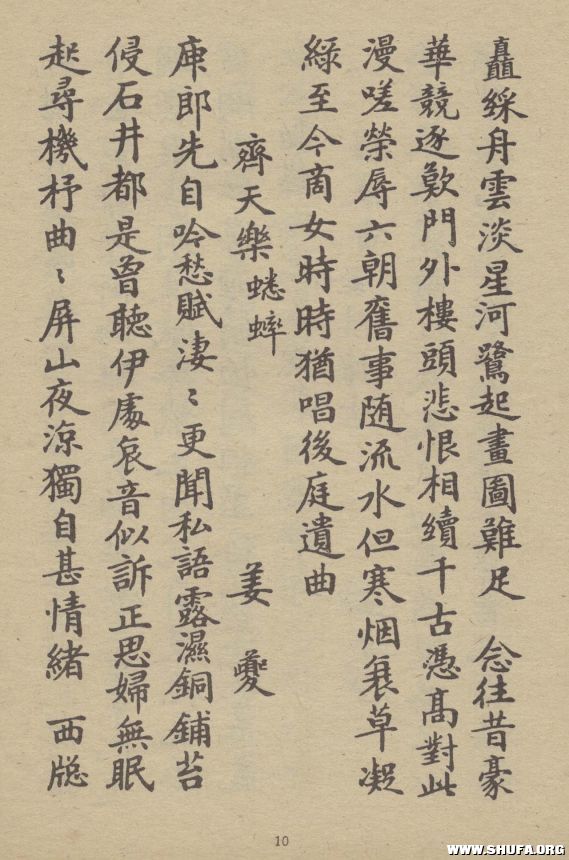 矗綵舟雲淡星河鷺起畫圖難足　念往昔豪
華競逐歎門外樓頭悲恨相續千古憑高對此
漫嗟榮辱六朝舊事随流水但寒烟衰草凝
綠至今商女時時猶唱後庭遺曲
齊天樂 蟋蟀　姜夔
庾郎先自吟愁賦淒〻更聞私語露濕銅鋪苔
侵石井都是曾聽伊處哀音似訴正思婦無眠
起尋機杼曲〻屏山夜涼獨自甚情緒　西牕
10
WWW.SHUFA.ORG